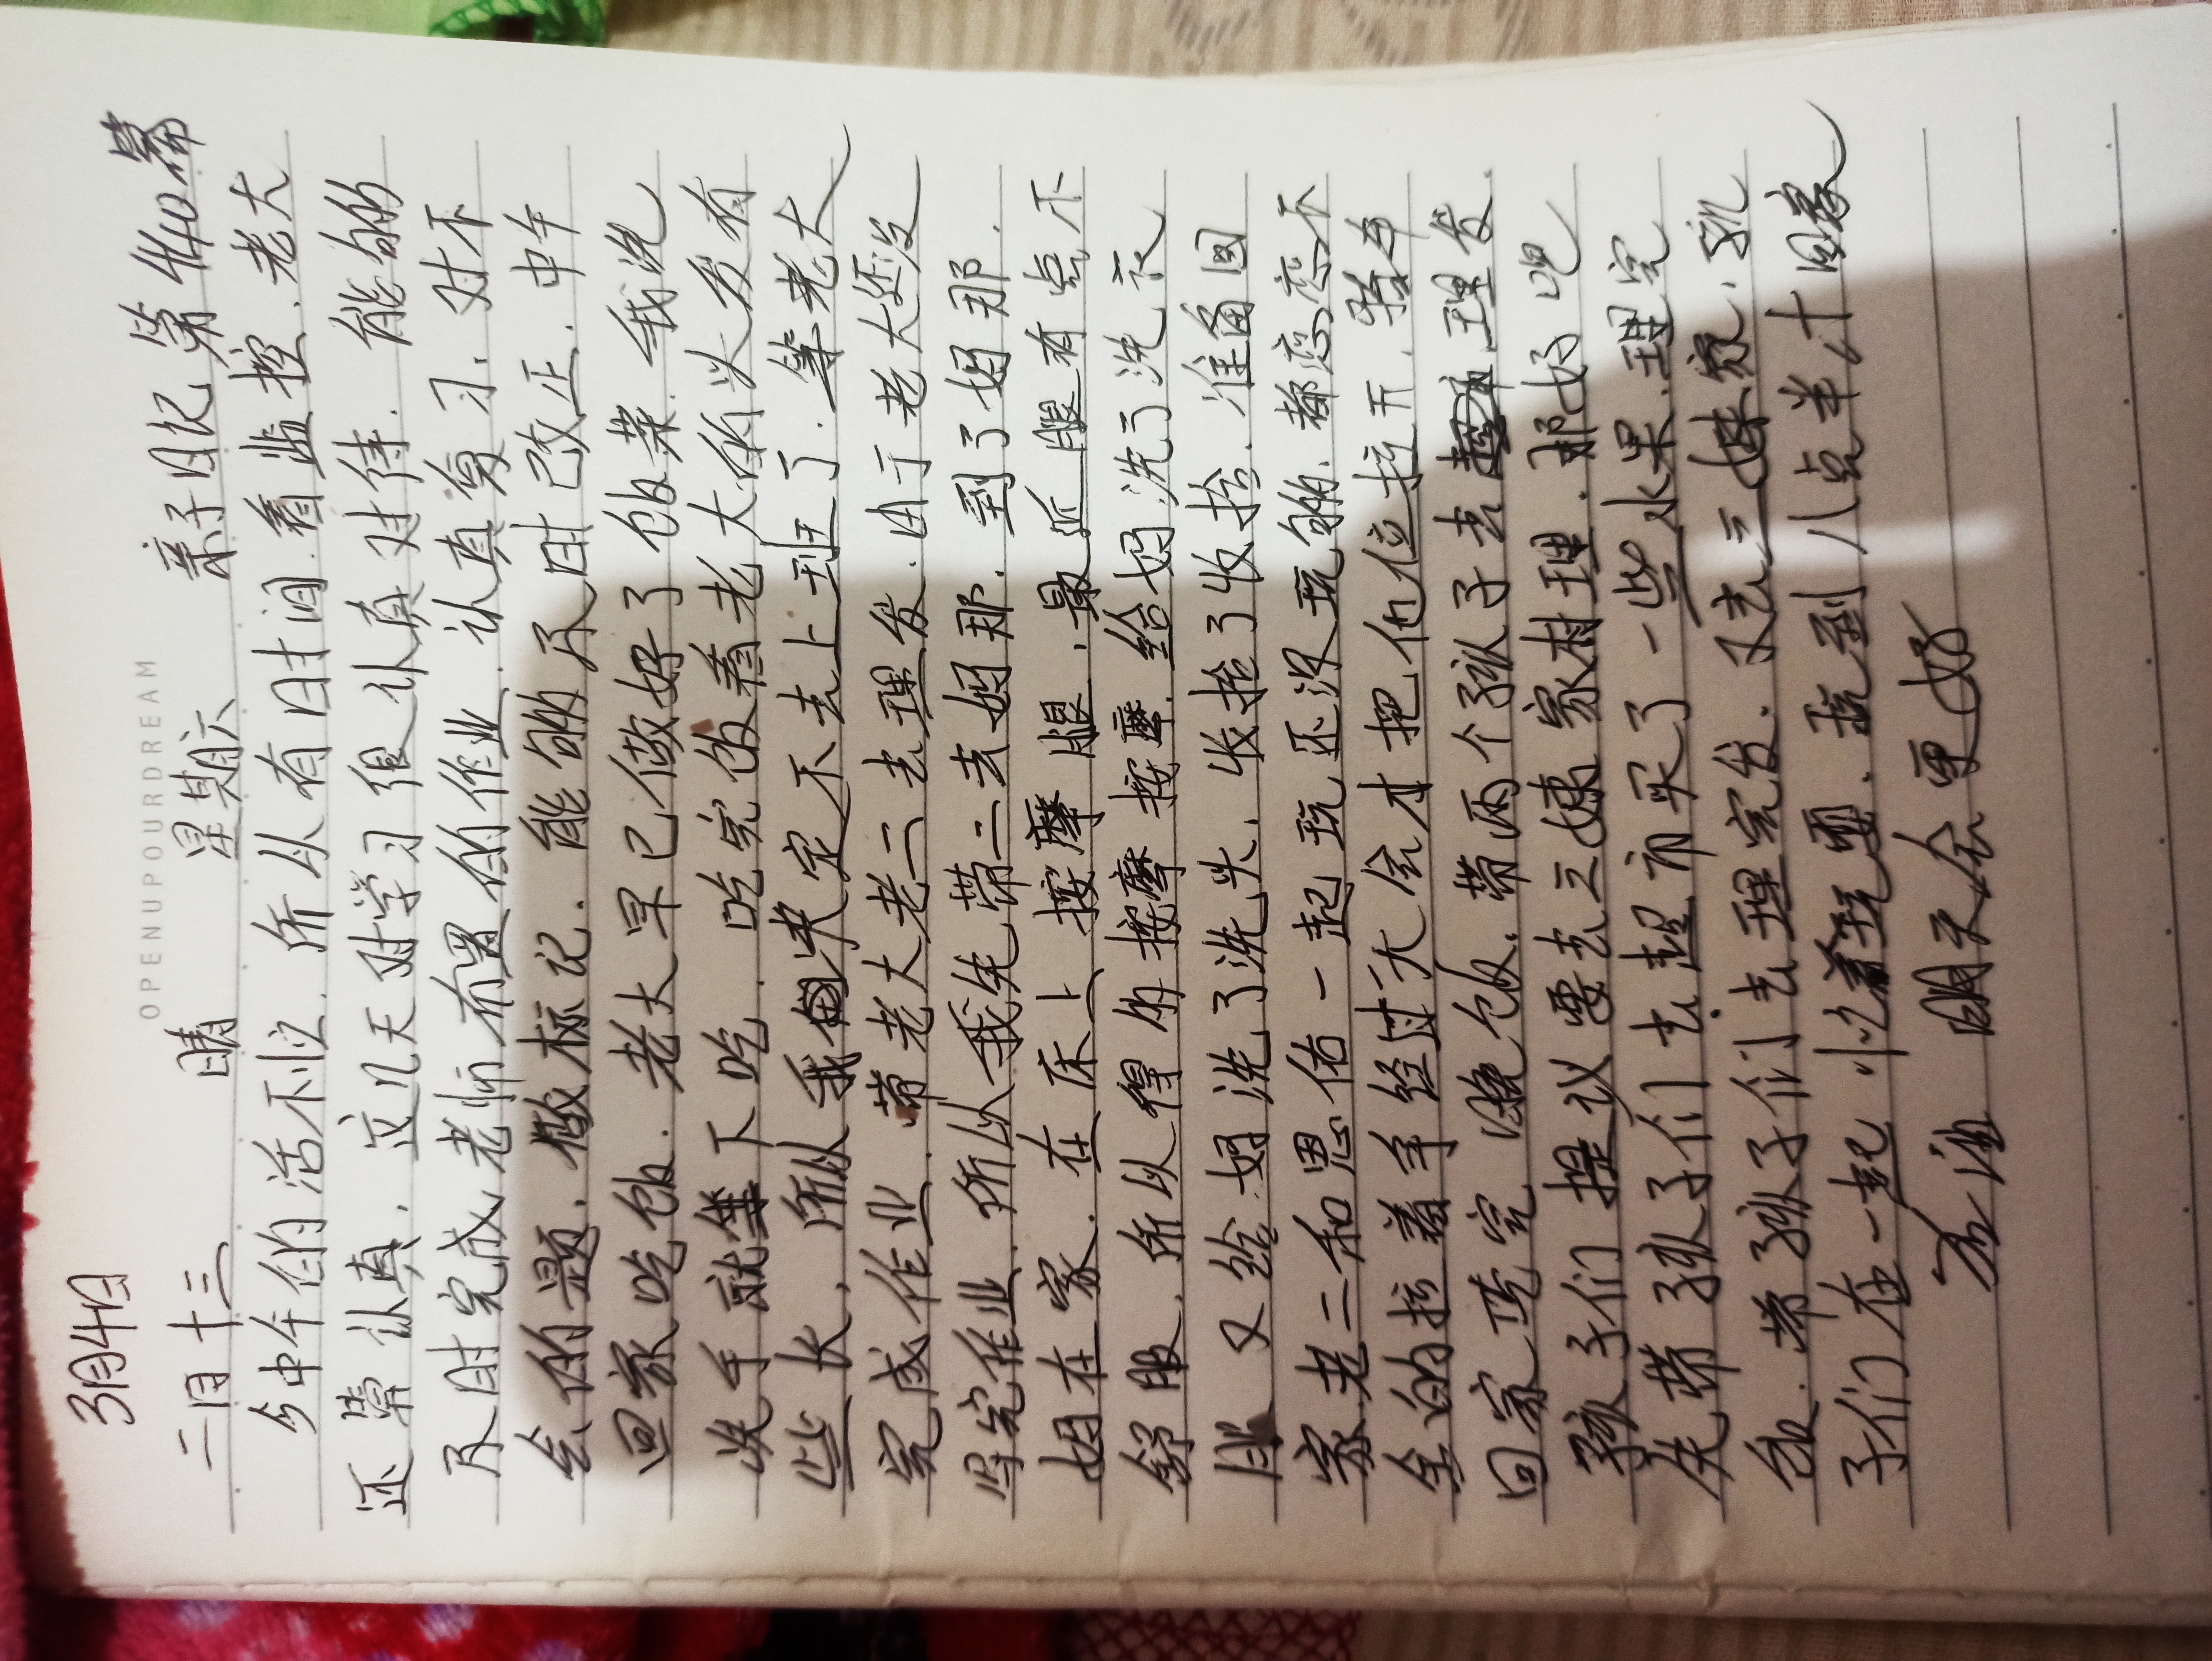 OPENUPYOURDREAM
3月4日
二月十三 晴 星期六 亲子日记 第440篇
今中午的活不忙.所以有时间.看监控.老大
还常认真.这几天对学习很认真对待.能的
及时完成老师布置的作业.认真复习.对不
会的题.做标记.能的及时已改正.中午
回家吃饭.老大早已做好了饭菜.我洗
洗手就坐下吃.吃完饭看老大的头发有
些长.所以我决定不去上班了.等老大
完成作业.带老大老二去理发.由于老大还没
写完作业.所以我先带二去妈那.到了妈那.
妈在家.在床上按摩腿.最近腿有点不
舒服.所以得的按摩按摩.给妈洗了洗衣
服 又给妈洗了洗头.收拾了收拾.准备回
家.老二和思佑一起玩还没玩的.都恋恋不
舍的拉着手经过一大会才把他位拉开.骑车
回家 烧完晚饭.带两个孩子去理发.
孩子们提议要去三婊家村理.那好吧
先带孩子们去超市买了一些水果.理完
发.带孩子们去理完发.又去三婊家.孩
子们在一起忙着玩耍.玩到八点半才回家
明天会更好